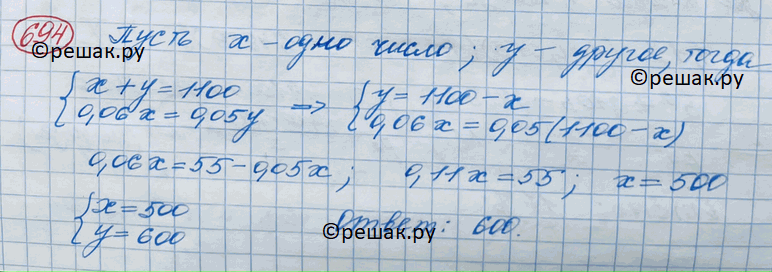 694 Пусть x - одно число; y - другое, тогда
©решак.ру
©решак.ру
{ x + y = 1100 => { y = 1100 - x
0,06x = 0,05y 0,06x = 0,05(1100 - x)
0,06x = 55 - 0,05x; 0,11x = 55; x = 500
{ x = 500
y = 600 Ответ: 600.
©решак.ру